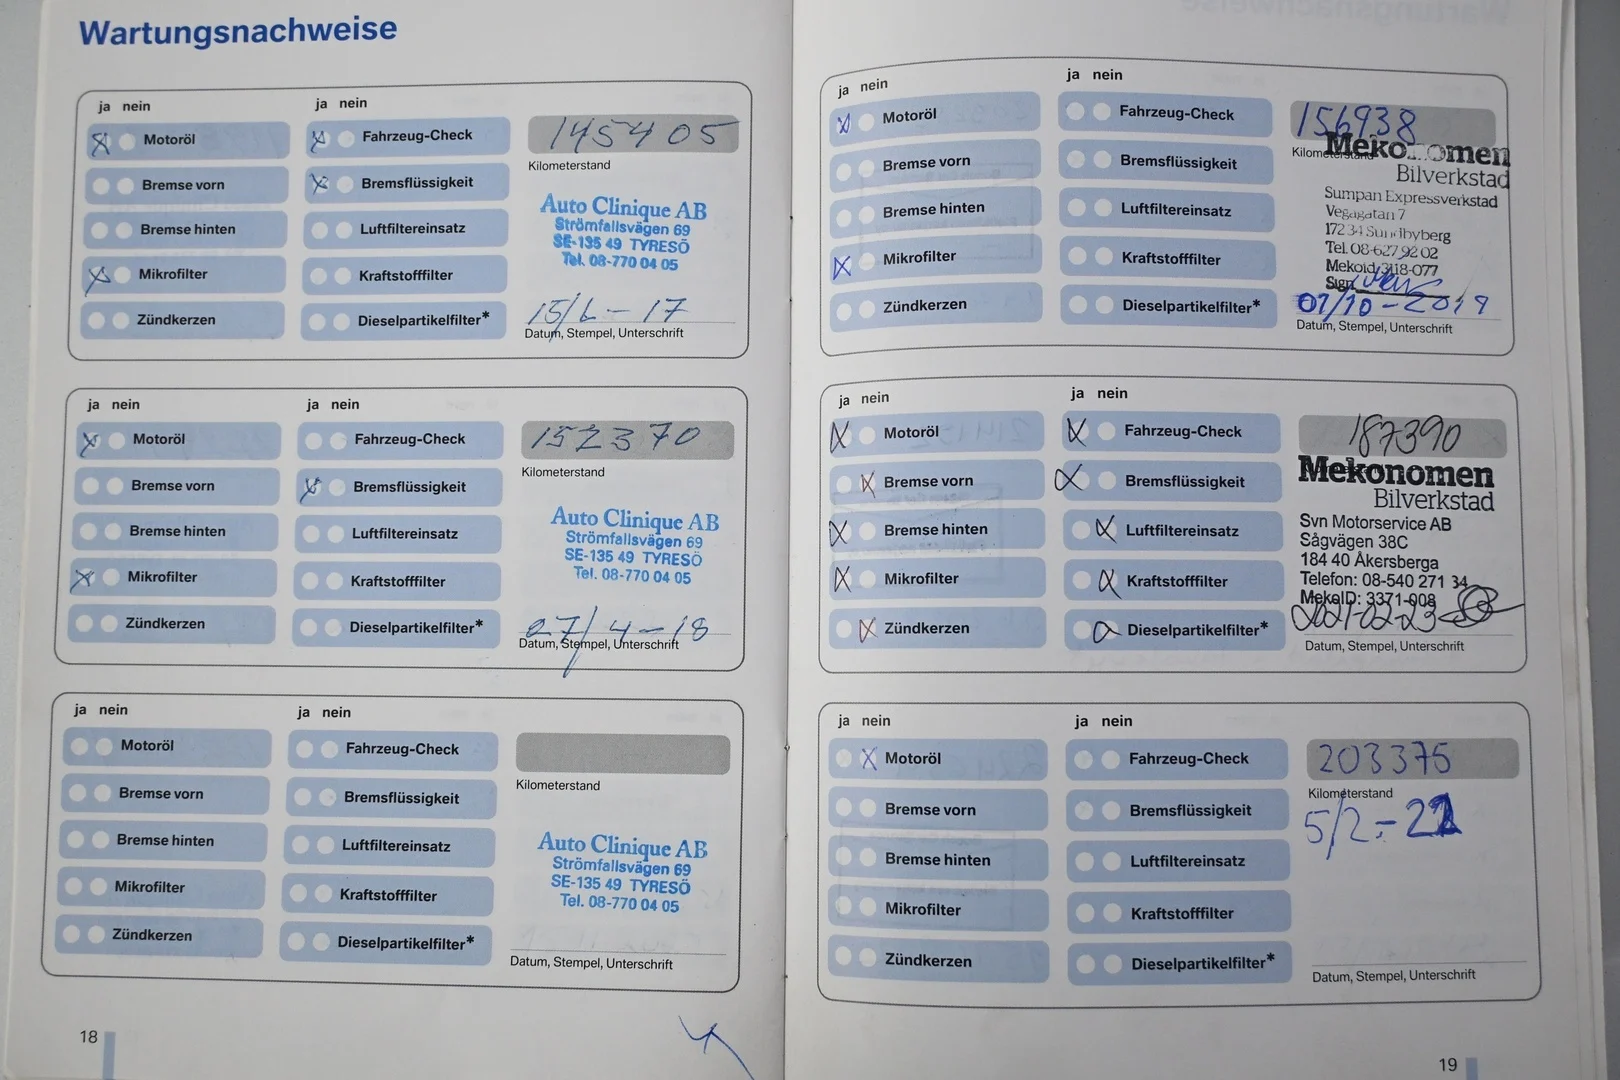 Wartungsnachweise
ja nein
ja nein
Motoröl
Fahrzeug-Check
145405
Bremse vorn
Bremsflüssigkeit
Kilometerstand
Bremse hinten
Luftfiltereinsatz
Auto Clinique AB
Strömfallsvägen 69
SE-135 49 TYRESÖ
Tel. 08-770 04 05
Mikrofilter
Kraftstofffilter
Zündkerzen
Dieselpartikelfilter*
15/6-17
Datum, Stempel, Unterschrift
ja nein
ja nein
Motoröl
Fahrzeug-Check
152370
Bremse vorn
Bremsflüssigkeit
Kilometerstand
Bremse hinten
Luftfiltereinsatz
Auto Clinique AB
Strömfallsvägen 69
SE-135 49 TYRESÖ
Tel. 08-770 04 05
Mikrofilter
Kraftstofffilter
Zündkerzen
Dieselpartikelfilter*
27/4-18
Datum, Stempel, Unterschrift
ja nein
ja nein
Motoröl
Fahrzeug-Check
Bremse vorn
Bremsflüssigkeit
Kilometerstand
Bremse hinten
Luftfiltereinsatz
Auto Clinique AB
Strömfallsvägen 69
SE-135 49 TYRESÖ
Tel. 08-770 04 05
Mikrofilter
Kraftstofffilter
Zündkerzen
Dieselpartikelfilter*
Datum, Stempel, Unterschrift
18
ja nein
ja nein
Motoröl
Fahrzeug-Check
156938
Bremse vorn
Bremsflüssigkeit
Kilometerstand
Mekonomen
Bilverkstad
Bremse hinten
Luftfiltereinsatz
Sumpan Expressverkstad
Vegagatan 7
172 34 Sundbyberg
Tel. 08-627 92 02
Mekoid: 3118-077
Sign
Mikrofilter
Kraftstofffilter
Zündkerzen
Dieselpartikelfilter*
01/10-2019
Datum, Stempel, Unterschrift
ja nein
ja nein
Motoröl
Fahrzeug-Check
187390
Bremse vorn
Bremsflüssigkeit
Mekonomen
Bilverkstad
Bremse hinten
Luftfiltereinsatz
Svn Motorservice AB
Sågvägen 38C
184 40 Åkersberga
Telefon: 08-540 271 34
MekoID: 3371-008
Mikrofilter
Kraftstofffilter
Zündkerzen
Dieselpartikelfilter*
2021-02-23
Datum, Stempel, Unterschrift
ja nein
ja nein
Motoröl
Fahrzeug-Check
203375
Bremse vorn
Bremsflüssigkeit
Kilometerstand
5/2-22
Bremse hinten
Luftfiltereinsatz
Mikrofilter
Kraftstofffilter
Zündkerzen
Dieselpartikelfilter*
Datum, Stempel, Unterschrift
19